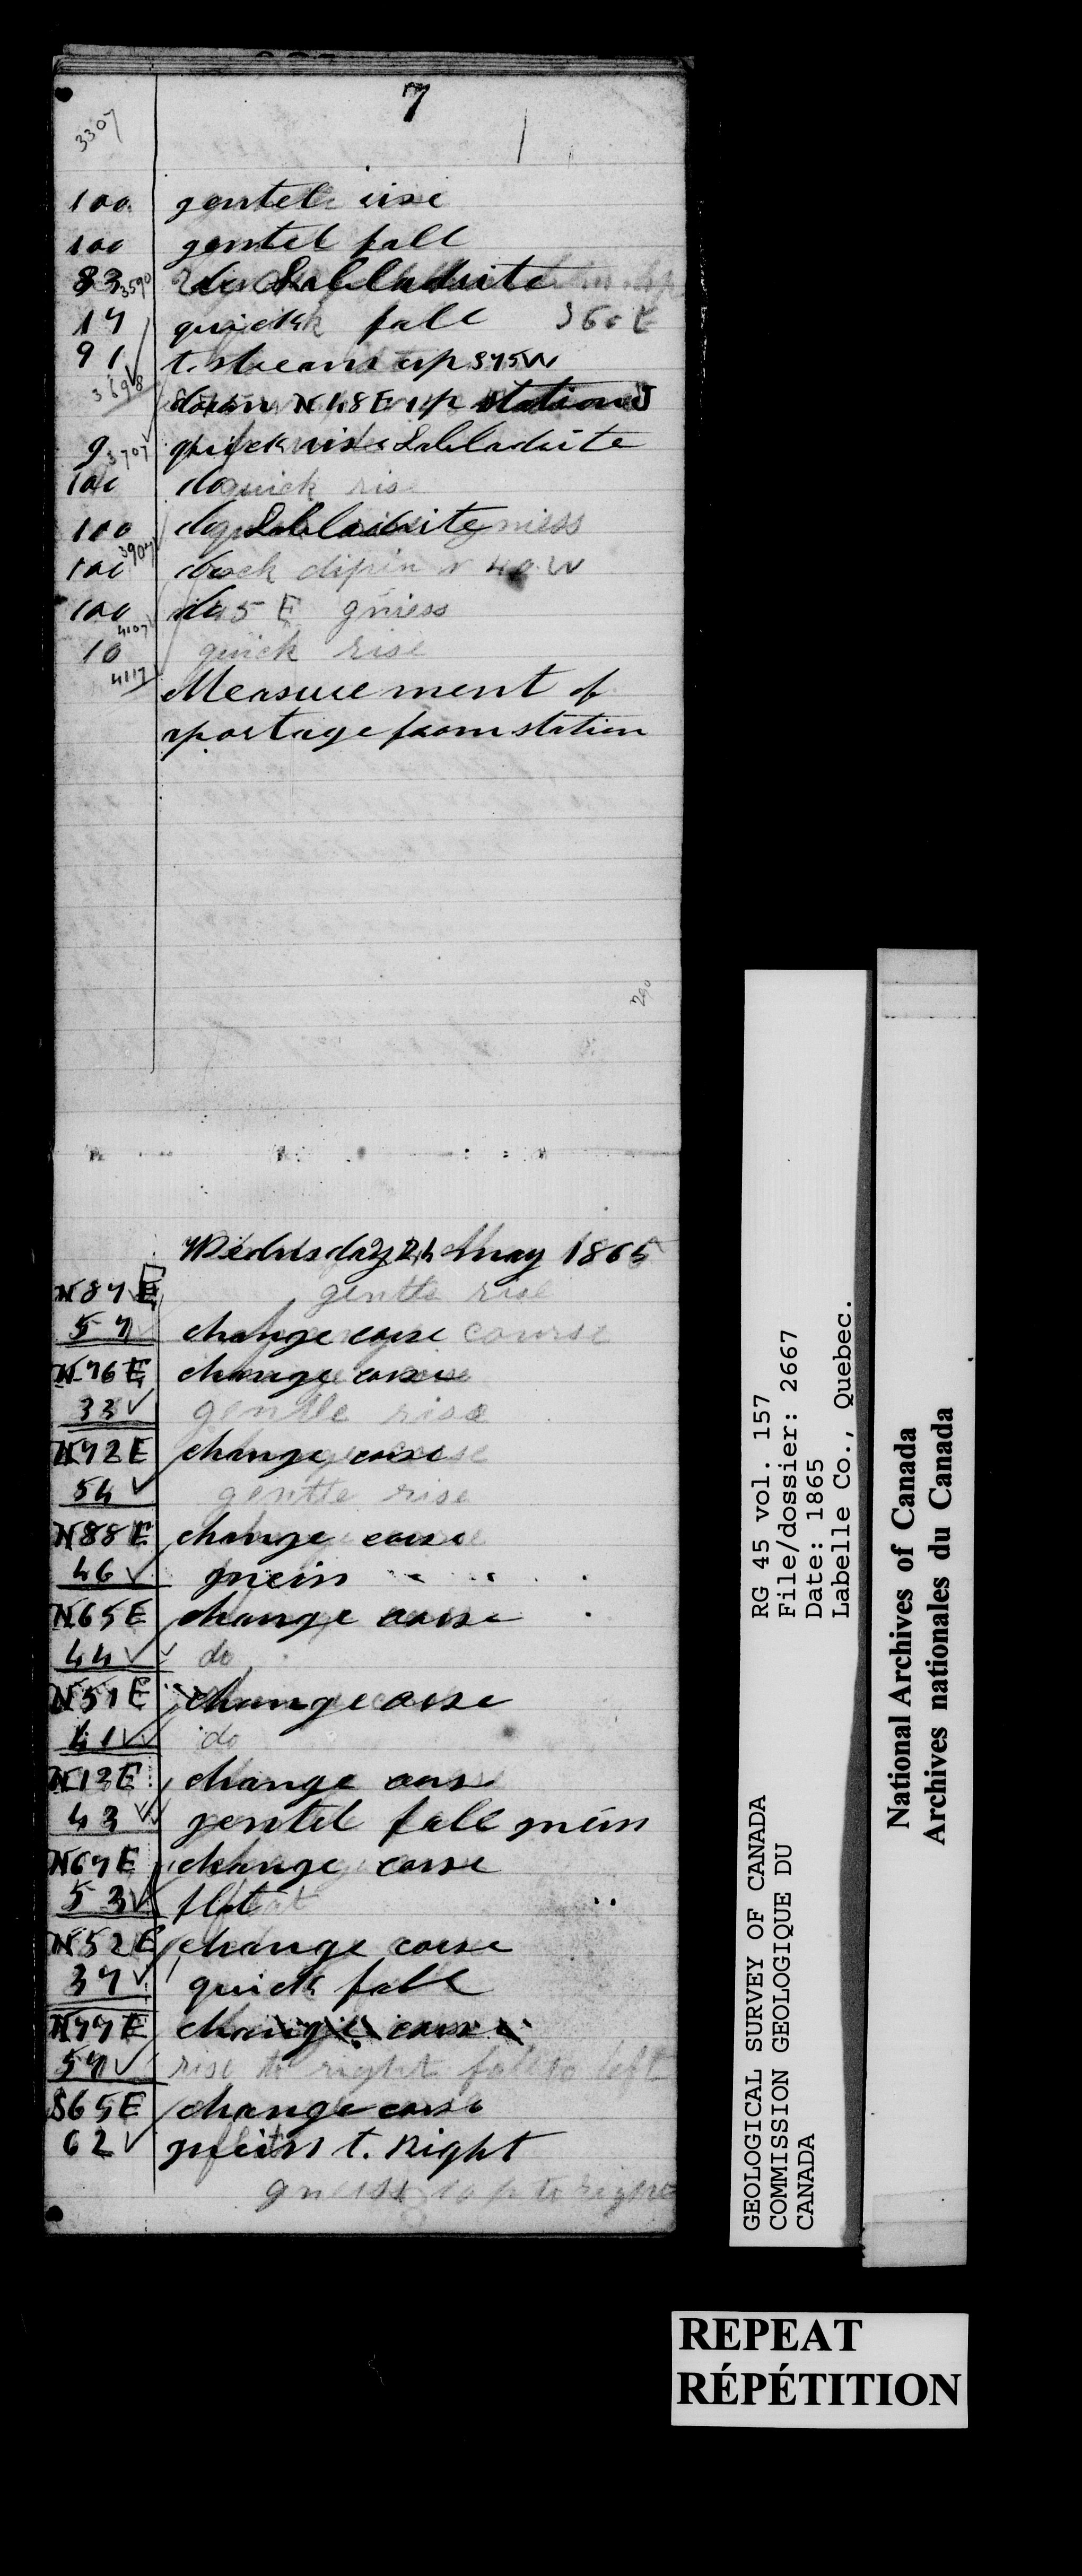 7
3307
100 gentel rise
100 gentel fall
83 3590 do Labladrite
17 quick fall S60E
91 t. stream up S75W
3698 down N48E up station J
9 3707 quick rise Labladrite
100 do quick rise
100 do Labladrite gniess
100 3907 do rock dipin N 40 W
100 do 45 E gniess
4107
10 quick rise
4117 Measurement of
portage from station
290
Wednisday 24 May 1865
N87E gentle rise
57 change corse course
N76E change corse
33 gentle rise
N72E change corse
54 gentle rise
N88E change corse
46 gneiss
N65E change corse
44 do
N51E change corse
41 do
N13E change corse
43 gentel fall gneiss
N67E change corse
53 flat
N52E change corse
37 quick fall
N77E change corse
57 rise to right fall to left
S65E change corse
62 gneiss t. Right
gneiss to right
GEOLOGICAL SURVEY OF CANADA
COMMISSION GEOLOGIQUE DU
CANADA
RG 45 vol. 157
File/dossier: 2667
Date: 1865
Labelle Co., Quebec.
National Archives of Canada
Archives nationales du Canada
REPEAT
RÉPÉTITION